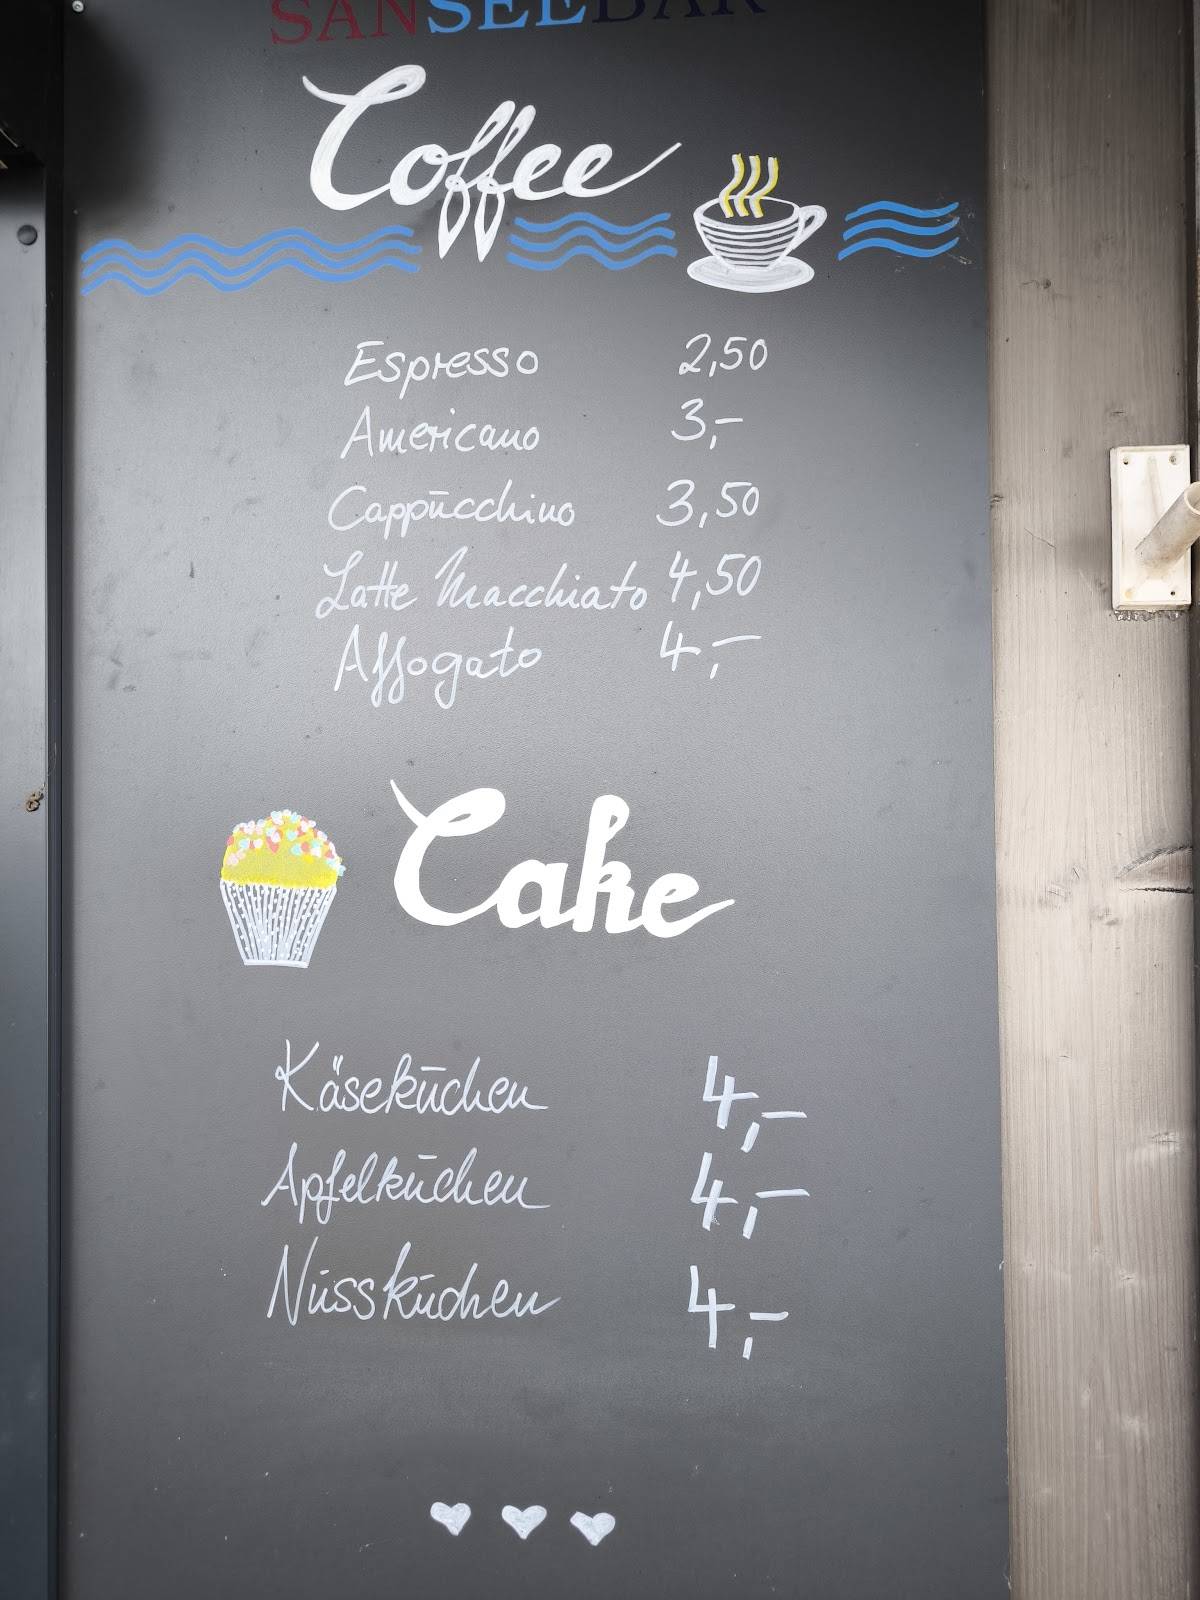 SANSEEBAR
Coffee
Espresso 2,50
Americano 3,-
Cappūcchino 3,50
Latte Macchiato 4,50
Affogato 4,-
Cake
Käsekūchen 4,-
Apfelkūchen 4,-
Nūsskūchen 4,-